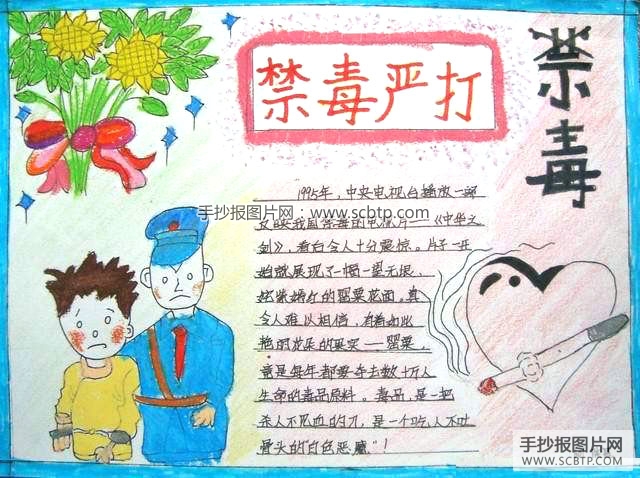 禁毒严打
禁毒
1995年，中央电视台播放一部
反映我国禁毒的电视片——《中华之
剑》，看台令人十分震惊。片子一开
始就展现了一幅一望无垠、
姹紫嫣红的罂粟花面，真
令人难以相信，有着如此
艳丽花朵的果实——罂粟，
竟是每年都要夺去数十万人
生命的毒品原料。毒品，是一把
杀人不见血的刀，是一个吃人不吐
骨头的"白色恶魔"！
手抄报图片网：www.scbtp.com
手抄报图片网
WWW.SCBTP.COM